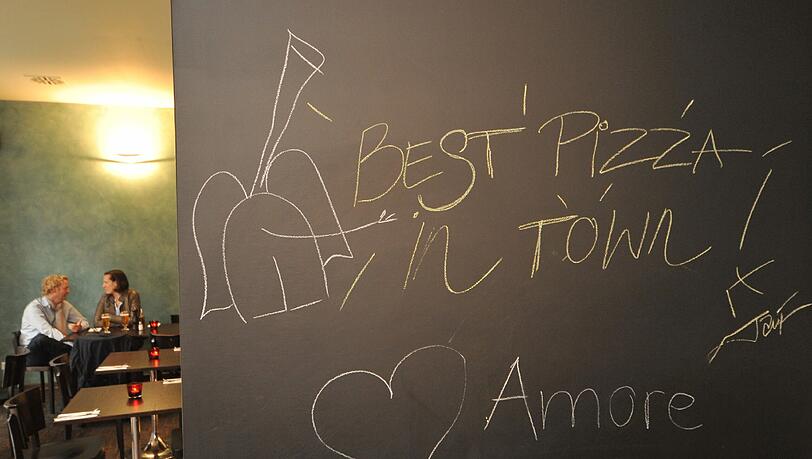 BEST PIZZA
in TOWN !
Amore